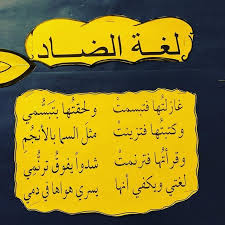 لغة الضاد
غازلتُها فتبسمتْ ولحقتُها بتبَسُّمي
وكتبتُها فتزينتْ مثل السما بالأنجُم
وقرأتُها فترنمتْ شدواً يفوقُ ترنُّمي
لغتي ويكفي أنها يسري هواها في دمي